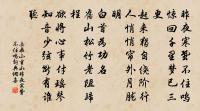 昨夜寒蛩不住鳴
驚回千里夢已三
更
起來獨自繞階行
人悄悄簾外月朧
明
白首為功名
舊山松竹老阻歸
程
欲將心事付瑤琴
知音少弦斷有誰聽
岳飛小重山昨夜寒蛩
不住鳴